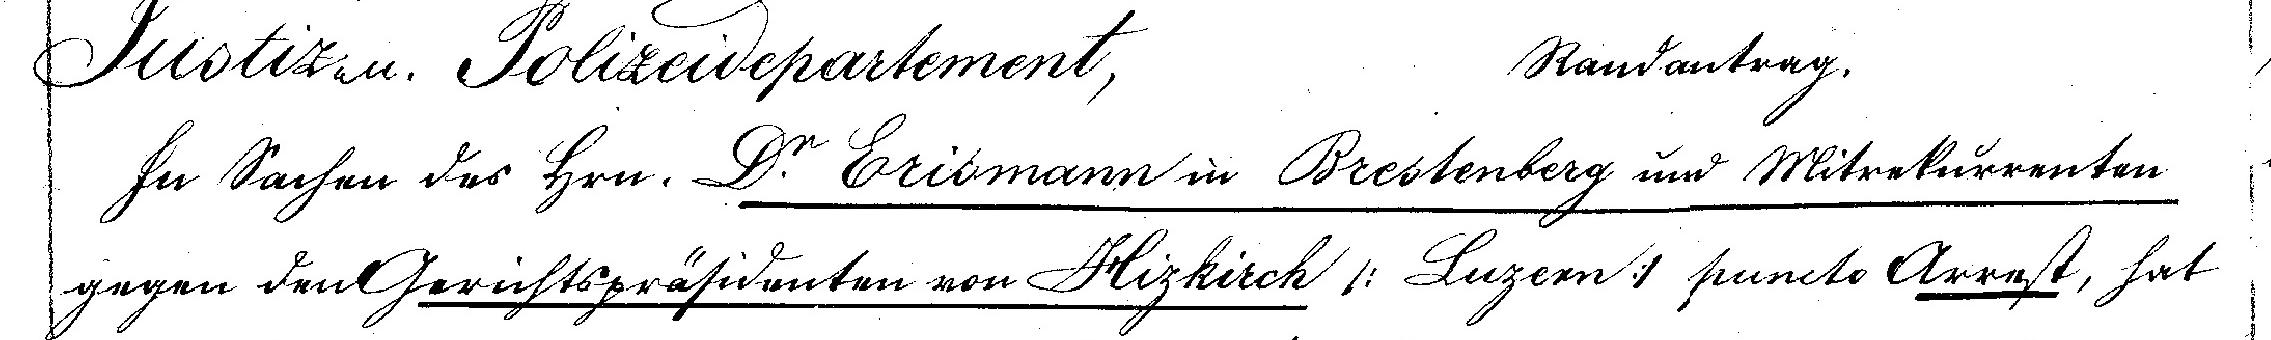 Justiz u. Polizeidepartement, Randantrag.
In Sachen des Hrn. Dr. Erismann in Brestenberg und Mitrekurrenten
gegen den Gerichtspräsidenten von Hizkirch /: Luzern :/ puncto Arrest, hat